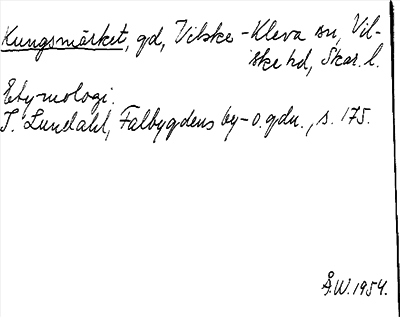 Kungsmärket, gd, Vilske-Kleva sn, Vil-
ske hd, Skar. l.
Etymologi.
I. Lundahl, Falbygdens by- o. gdn., s. 175.
Å.W. 1954.